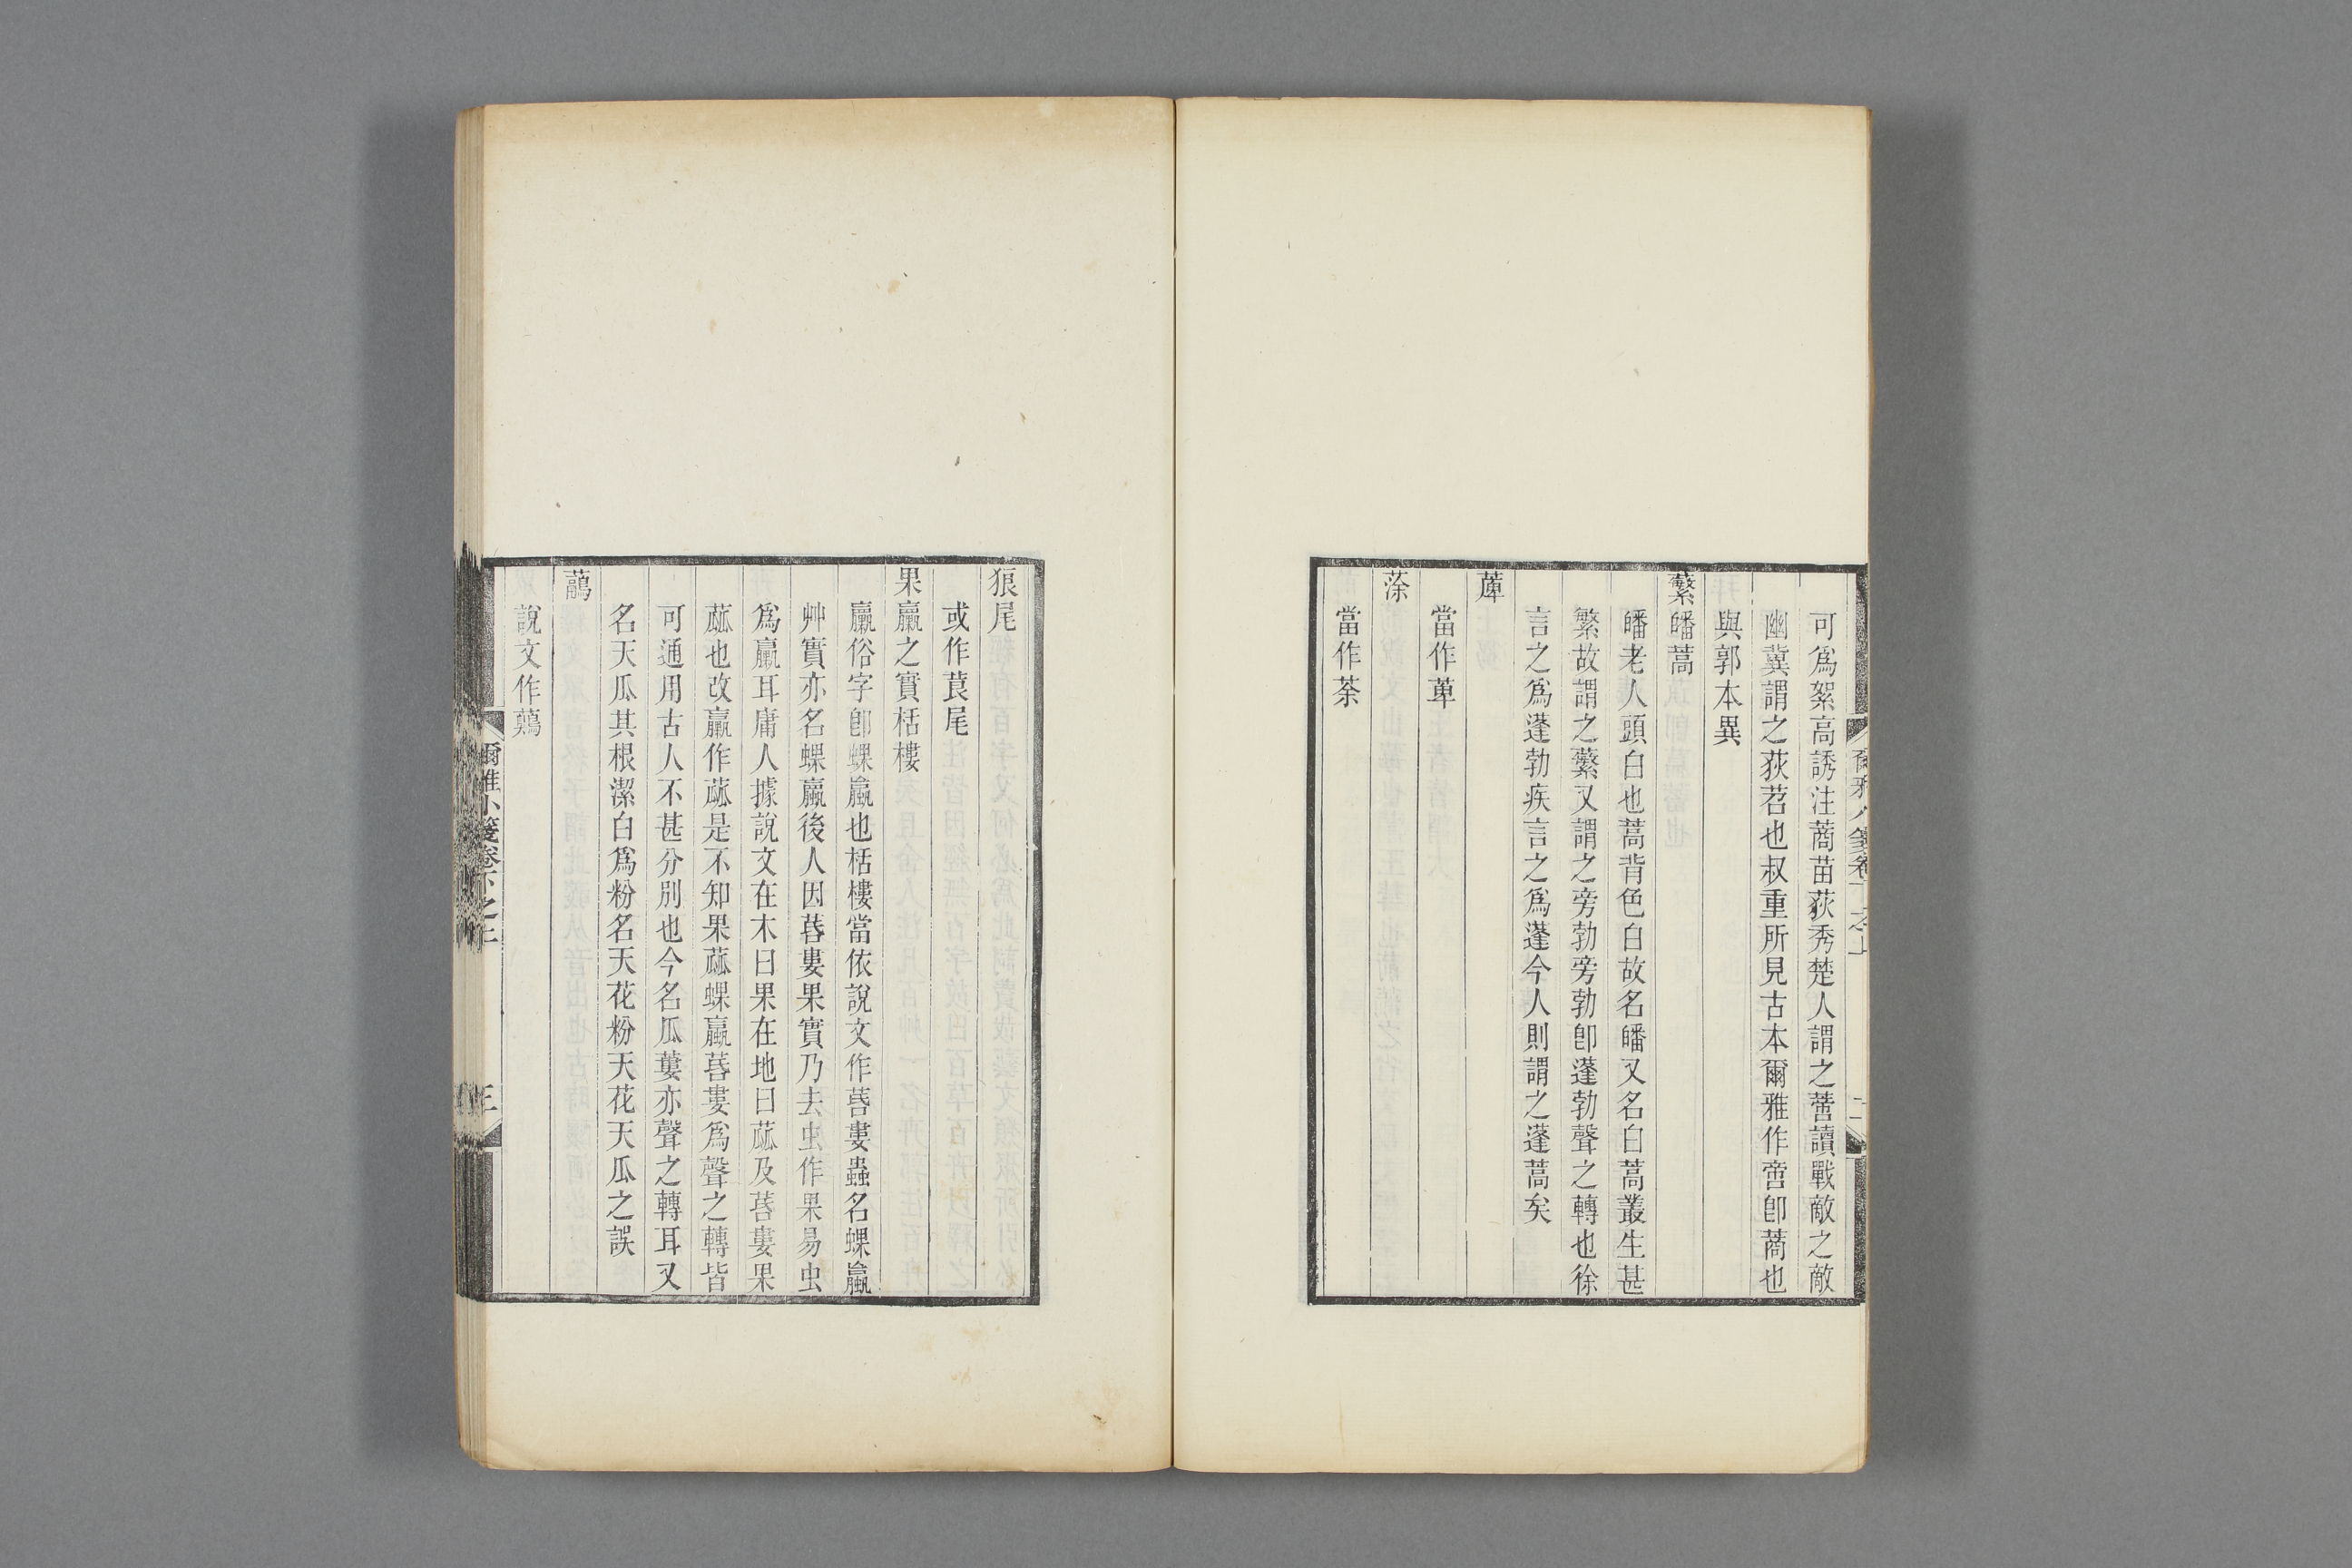 可爲絮高誘注蔐苗荻秀楚人謂之藡讀戰敵之敵
幽冀謂之荻苕也叔重所見古本爾雅作啻卽蔐也
與郭本異
蘩皤蒿
皤老人頭白也蒿背色白故名皤又名白蒿叢生甚
繁故謂之蘩又謂之旁勃旁勃卽蓬勃聲之轉也徐
言之爲蓬勃疾言之爲蓬今人則謂之蓬蒿矣
當作萆
蒤
當作荼
狼尾
或作莨尾
果臝之實栝樓
臝俗字卽蜾蠃也栝樓當依說文作䓇婁蟲名蜾蠃
艸實亦名蜾蠃後人因䓇婁果實乃去虫作果易虫
爲臝耳庸人據說文在木曰果在地曰蓏及䓇婁果
蓏也改臝作蓏是不知果蓏蜾蠃䓇婁爲聲之轉皆
可通用古人不甚分別也今名瓜蔞亦聲之轉耳又
名天瓜其根潔白爲粉名天花粉天花天瓜之誤
虉
說文作鷊
爾雅小箋卷下之上
三